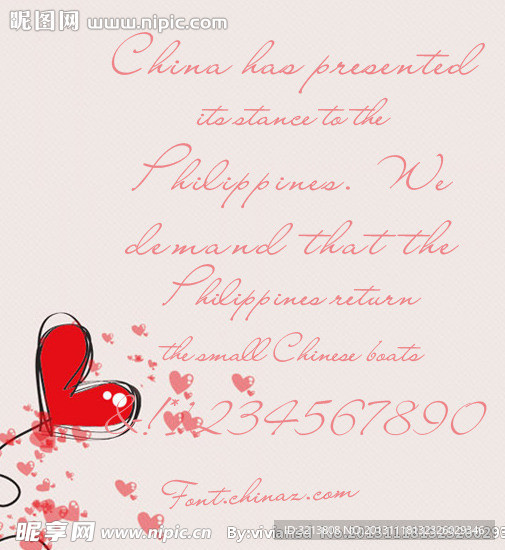 昵图网
www.nipic.com
China has presented
its stance to the
Philippines. We
demand that the
Philippines return
the small Chinese boats
&!*1234567890
Font.chinaz.com
昵享网 www.nipic.cn
ID:3213808 NO:20131118132326929346